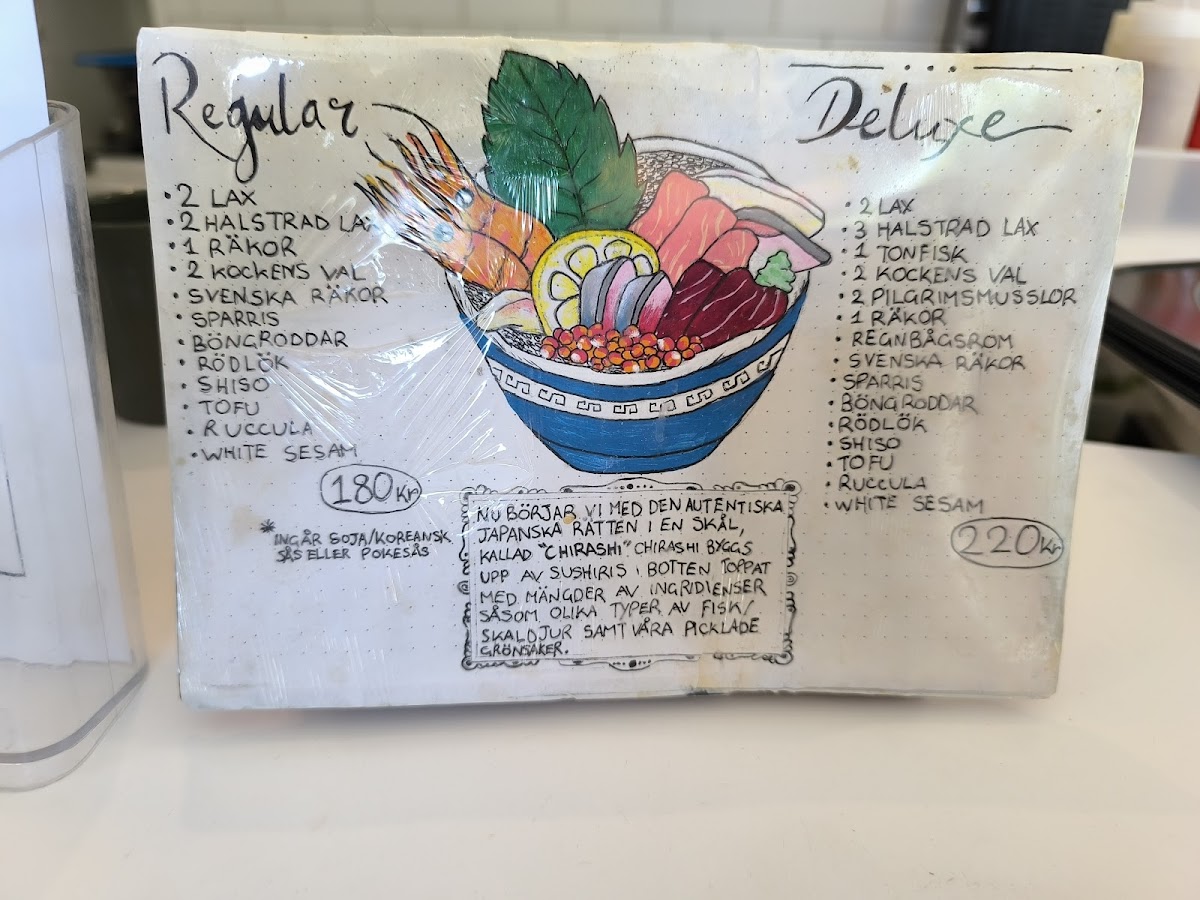 Regular
• 2 LAX
• 2 HALSTRAD LAX
• 1 RÄKOR
• 2 KOCKENS VAL
• SVENSKA RÄKOR
• SPARRIS
• BÖNGRODDAR
• RÖDLÖK
• SHISO
• TOFU
• RUCCULA
• WHITE SESAM
180 Kr
* INGÅR SOJA/KOREANSK
SÅS ELLER POKESÅS
Deluxe
• 2 LAX
• 3 HALSTRAD LAX
• 1 TONFISK
• 2 KOCKENS VAL
• 2 PILGRIMSMUSSLOR
• 1 RÄKOR
• REGNBÅGSROM
• SVENSKA RÄKOR
• SPARRIS
• BÖNGRODDAR
• RÖDLÖK
• SHISO
• TOFU
• RUCCULA
• WHITE SESAM
220 Kr
NU BÖRJAR VI MED DEN AUTENTISKA
JAPANSKA RÄTTEN I EN SKÅL,
KALLAD "CHIRASHI" CHIRASHI BYGGS
UPP AV SUSHIRIS I BOTTEN TOPPAT
MED MÄNGDER AV INGRIDIENSER
SÅSOM OLIKA TYPER AV FISK/
SKALDJUR SAMT VÅRA PICKLADE
GRÖNSAKER.